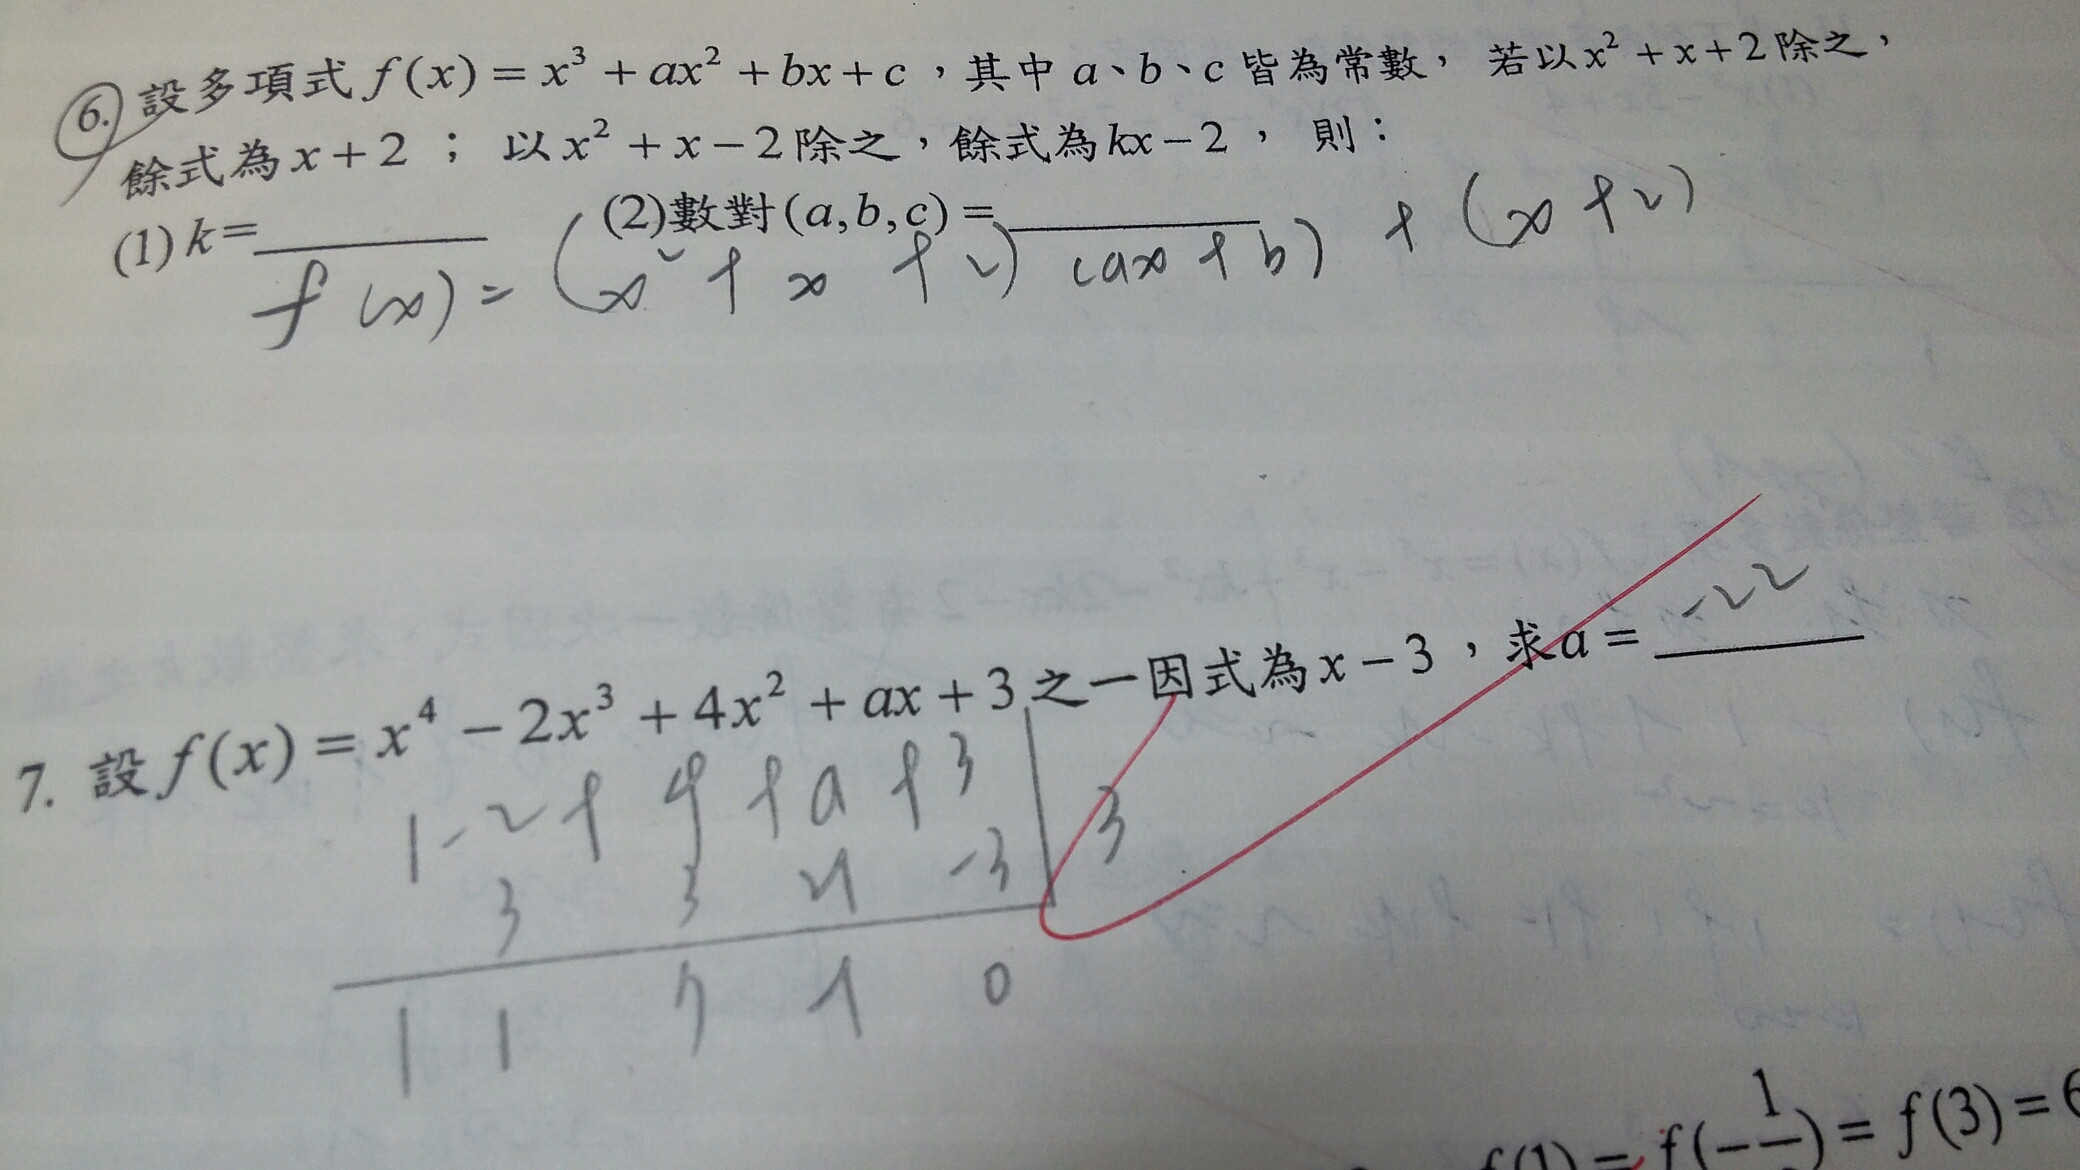 6. 設多項式 f(x) = x³ + ax² + bx + c，其中 a、b、c 皆為常數， 若以 x² + x + 2 除之，
餘式為 x + 2 ； 以 x² + x − 2 除之，餘式為 kx − 2 ， 則：
(1) k = ________ (2)數對 (a, b, c) = ________
f(x) = (x² + x + 2) (ax + b) + (x + 2)
7. 設 f(x) = x⁴ − 2x³ + 4x² + ax + 3 之一因式為 x − 3，求 a = -22
1 - 2 + 4 + a + 3 | 3
3 3 21 -3
1 1 7 -1 0
f(1) = f(−1/ ) = f(3) = 6